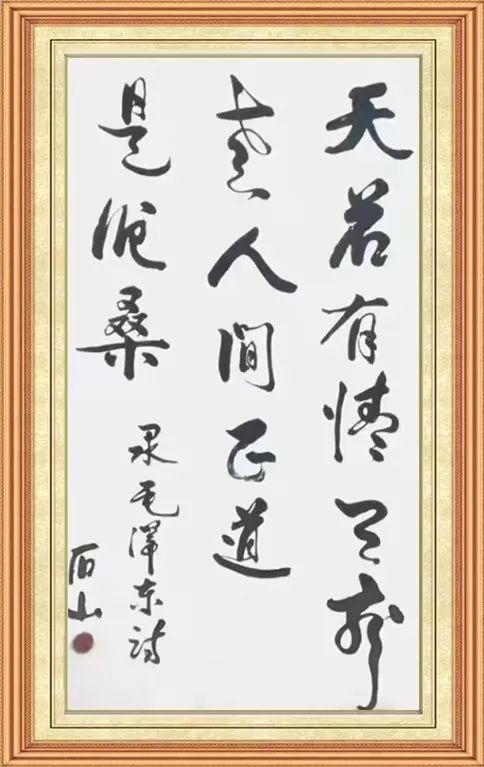 天若有情天亦
老人間正道
是滄桑
录毛澤东詩
石山